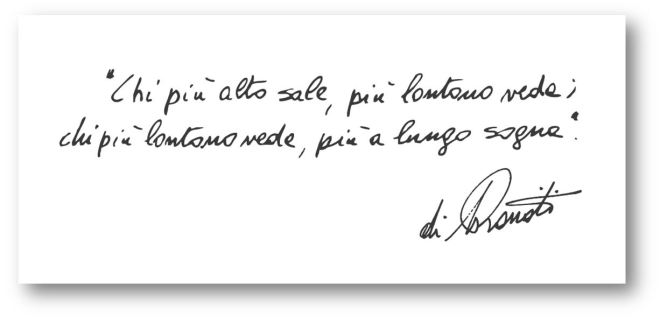 "Chi più alto sale, più lontano vede;
chi più lontano vede, più a lungo sogna".
di